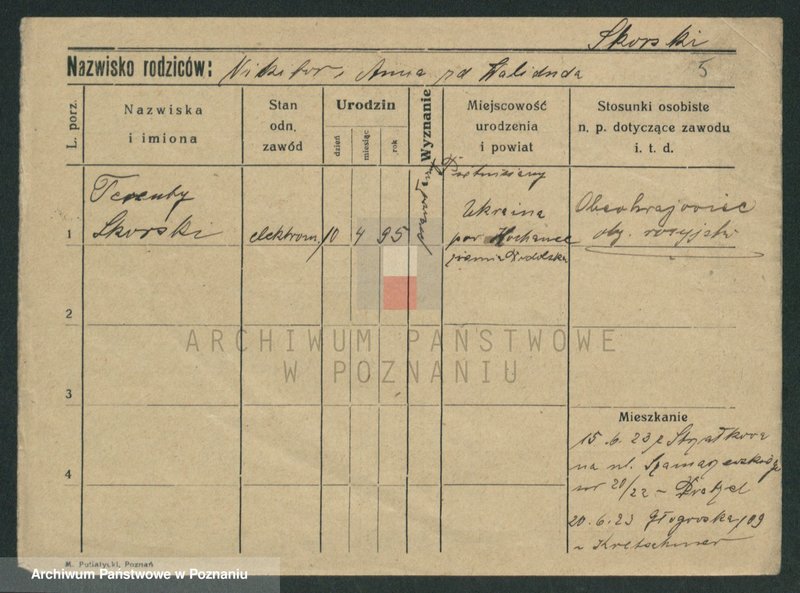 Skorski
Nazwisko rodziców: Nikifor i Anna zd
5
L. porz.
Nazwiska
i imiona
Stan
odn.
zawód
Urodzin
dzień
miesiąc
rok
Wyznanie
Miejscowość
urodzenia
i powiat
Stosunki osobiste
n. p. dotyczące zawodu
i. t. d.
1
Terenty
Skorski
elektrom.
10
4
95
Ukraina
pow
Podolska
Obcokrajowiec
ob. rosyjski
2
ARCHIWUM PAŃSTWOWE
W POZNANIU
3
Mieszkanie
4
15.6.23 z Strzałkowa
na ul.
nr 20/22 –
20.6.23 Głogowska 109
Kretschmer
M. Putiatycki, Poznań
Archiwum Państwowe w Poznaniu